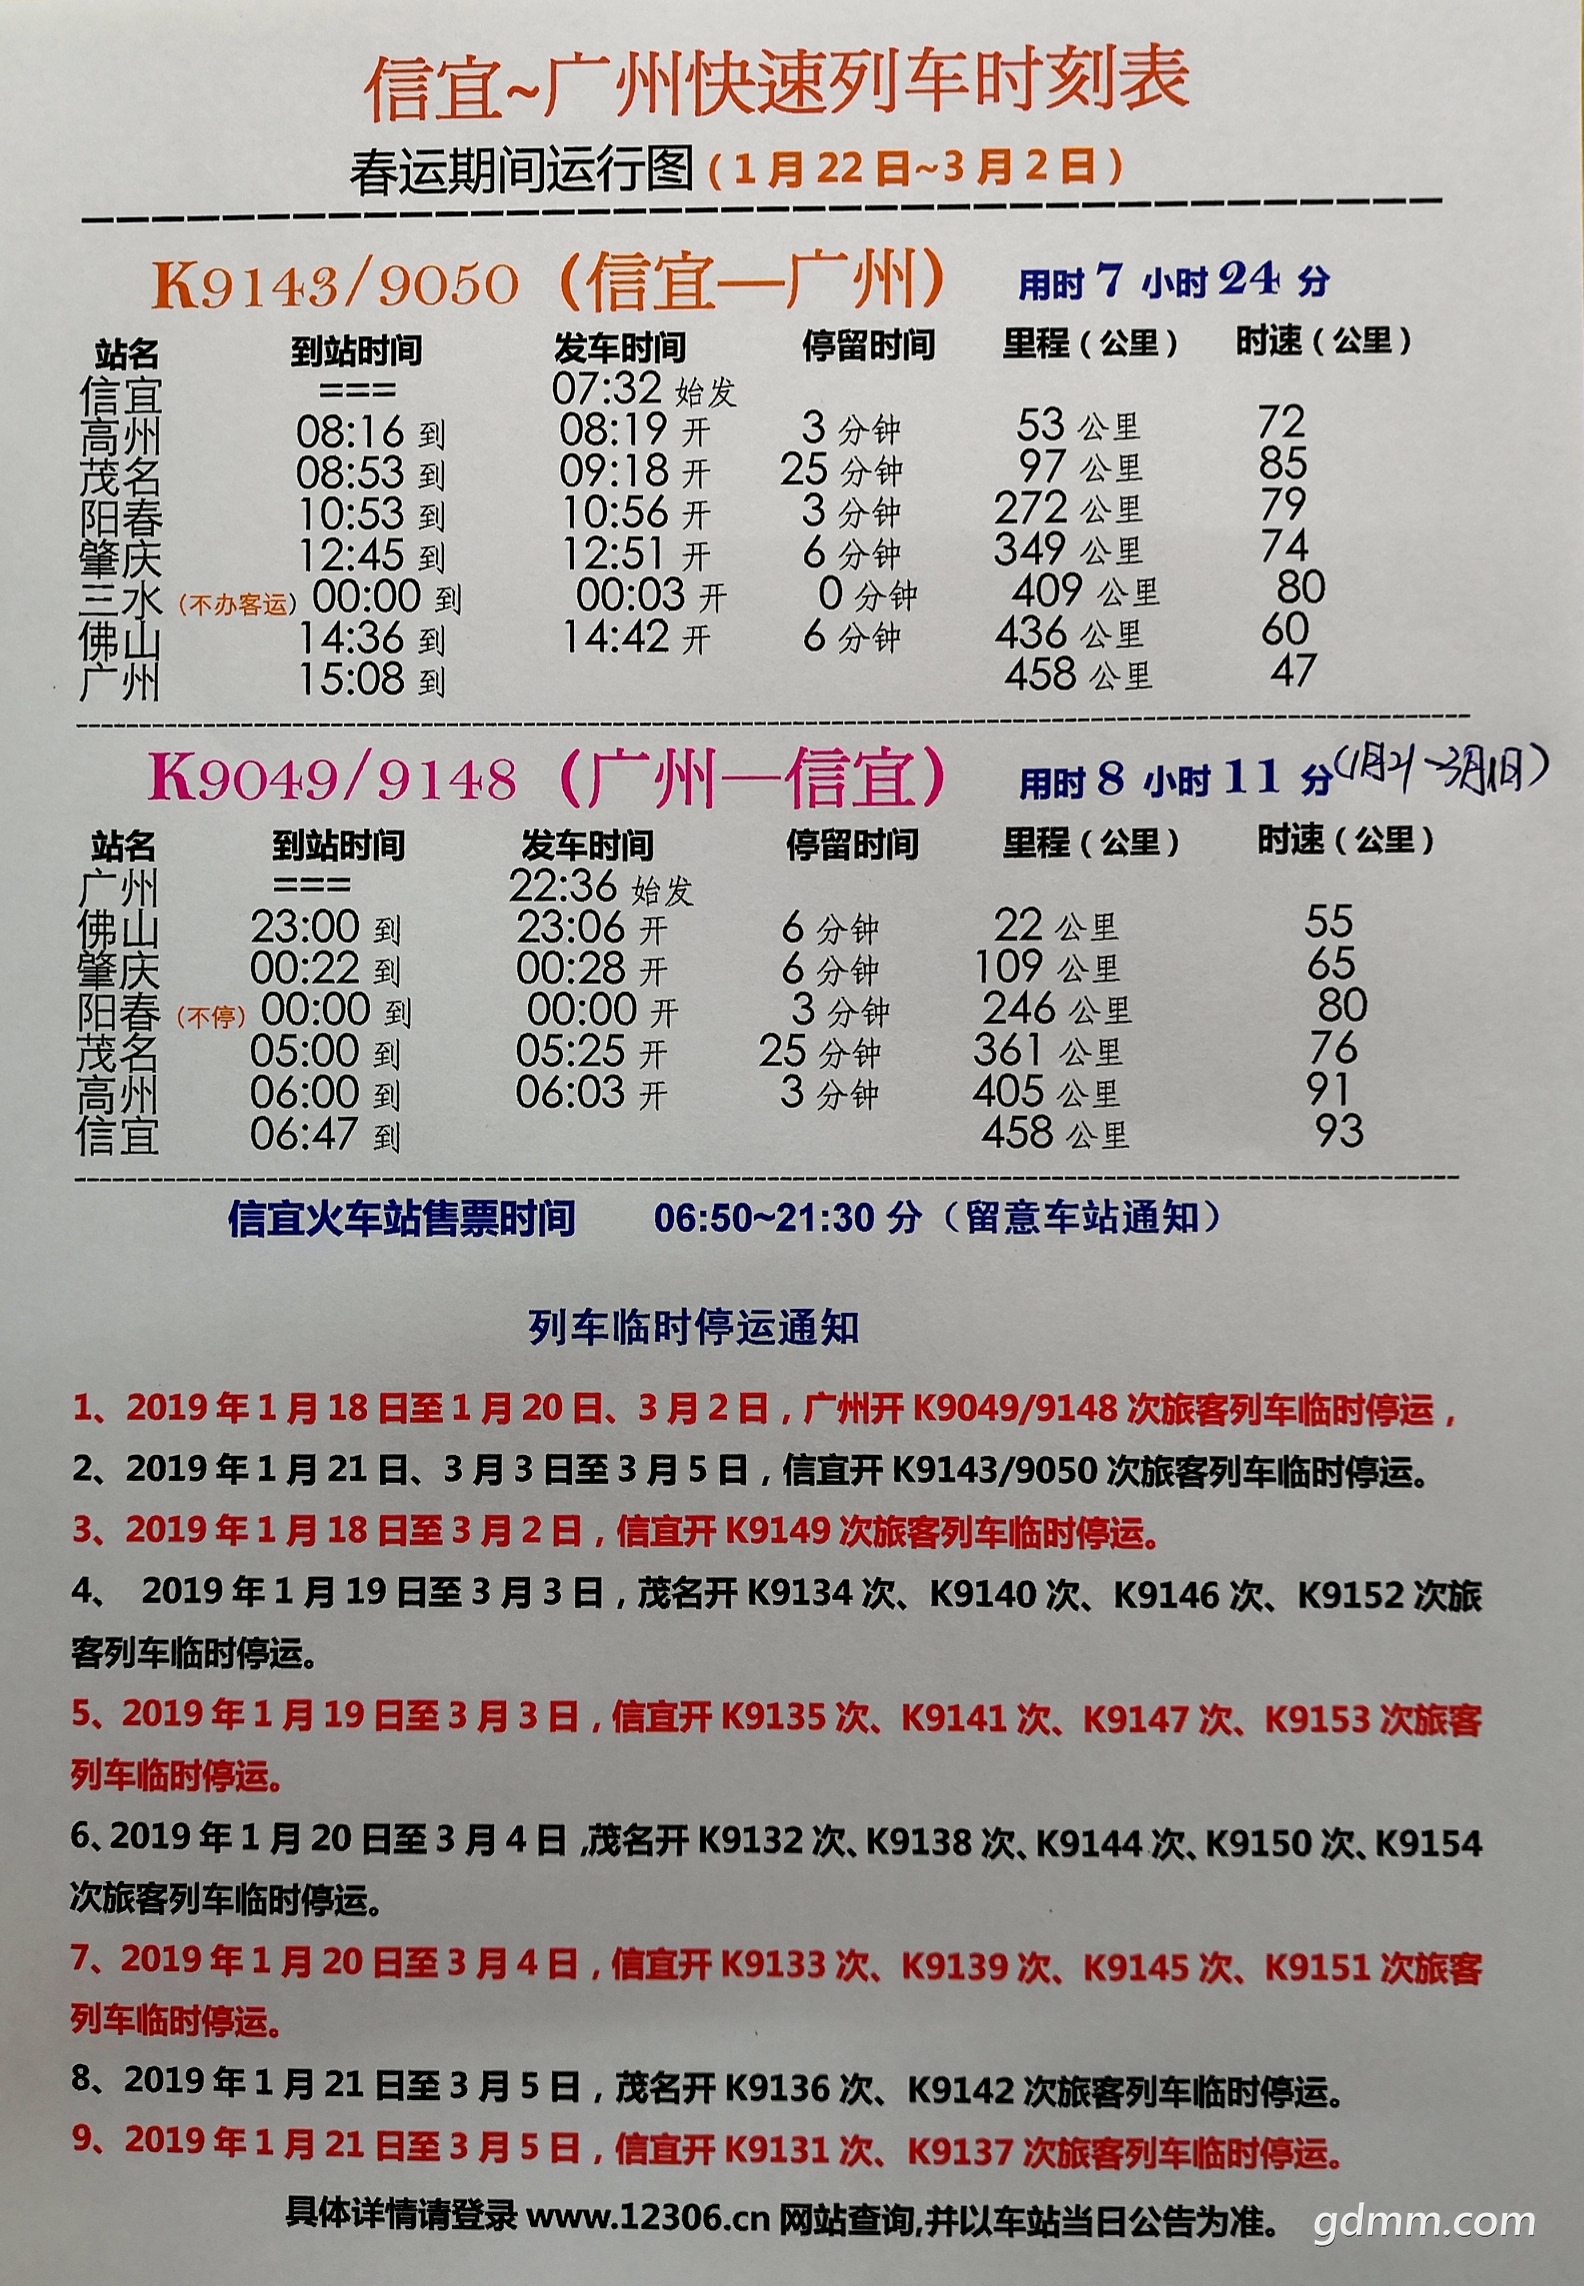 信宜~广州快速列车时刻表
春运期间运行图（1月22日~3月2日）
K9143/9050（信宜—广州） 用时7小时24分
站名 到站时间 发车时间 停留时间 里程（公里） 时速（公里）
信宜 === 07:32 始发
高州 08:16 到 08:19 开 3 分钟 53 公里 72
茂名 08:53 到 09:18 开 25 分钟 97 公里 85
阳春 10:53 到 10:56 开 3 分钟 272 公里 79
肇庆 12:45 到 12:51 开 6 分钟 349 公里 74
三水（不办客运）00:00 到 00:03 开 0 分钟 409 公里 80
佛山 14:36 到 14:42 开 6 分钟 436 公里 60
广州 15:08 到 458 公里 47
K9049/9148（广州—信宜） 用时8小时11分（1月21~3月1日）
站名 到站时间 发车时间 停留时间 里程（公里） 时速（公里）
广州 === 22:36 始发
佛山 23:00 到 23:06 开 6 分钟 22 公里 55
肇庆 00:22 到 00:28 开 6 分钟 109 公里 65
阳春（不停）00:00 到 00:00 开 3 分钟 246 公里 80
茂名 05:00 到 05:25 开 25 分钟 361 公里 76
高州 06:00 到 06:03 开 3 分钟 405 公里 91
信宜 06:47 到 458 公里 93
信宜火车站售票时间 06:50~21:30 分（留意车站通知）
列车临时停运通知
1、2019年1月18日至1月20日、3月2日，广州开K9049/9148次旅客列车临时停运，
2、2019年1月21日、3月3日至3月5日，信宜开K9143/9050次旅客列车临时停运。
3、2019年1月18日至3月2日，信宜开K9149次旅客列车临时停运。
4、 2019年1月19日至3月3日，茂名开K9134次、K9140次、K9146次、K9152次旅
客列车临时停运。
5、2019年1月19日至3月3日，信宜开K9135次、K9141次、K9147次、K9153次旅客
列车临时停运。
6、2019年1月20日至3月4日,茂名开K9132次、K9138次、K9144次、K9150次、K9154
次旅客列车临时停运。
7、2019年1月20日至3月4日，信宜开K9133次、K9139次、K9145次、K9151次旅客
列车临时停运。
8、2019年1月21日至3月5日，茂名开K9136次、K9142次旅客列车临时停运。
9、2019年1月21日至3月5日，信宜开K9131次、K9137次旅客列车临时停运。
具体详情请登录www.12306.cn网站查询,并以车站当日公告为准。
gdmm.com